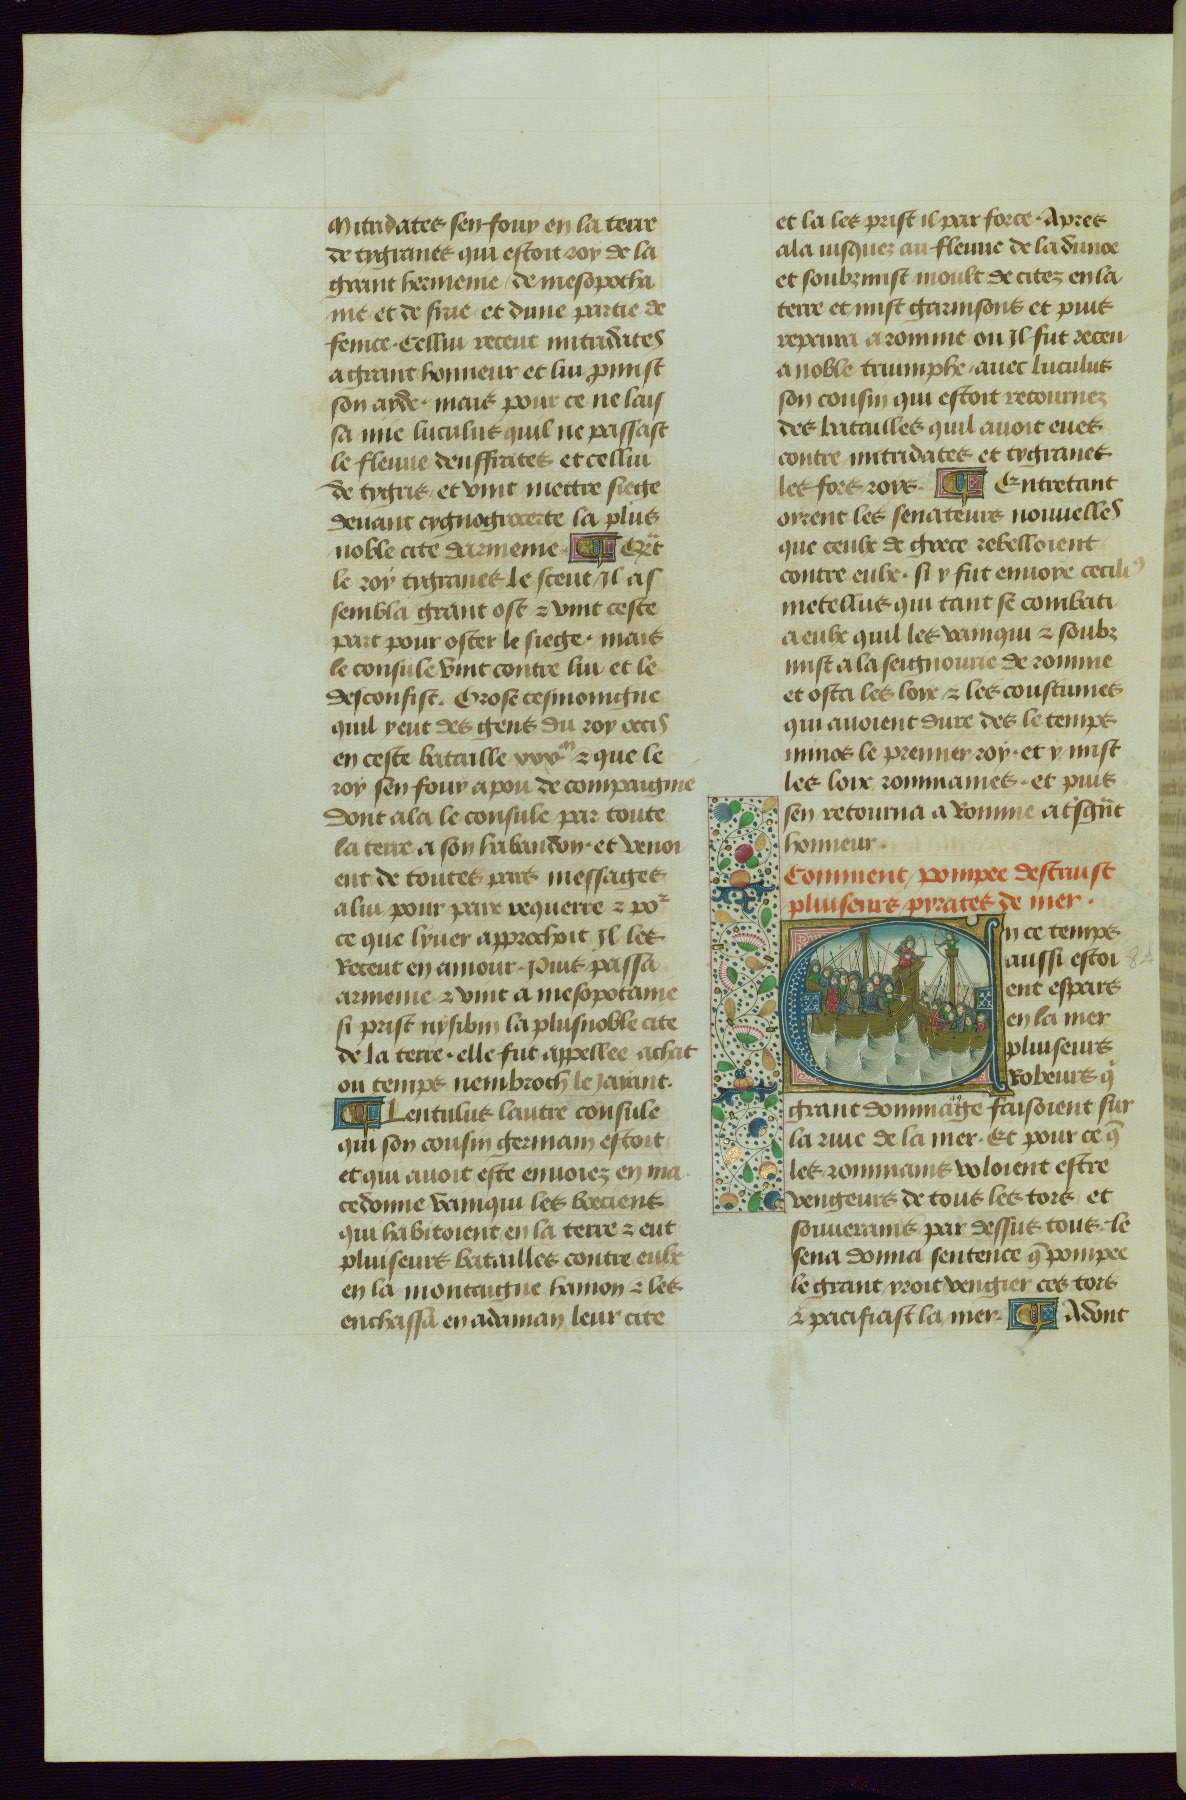 Mitridates sen fouy en la terre
de tygranes qui estoit roy de la
grant hermenie / de mesopotha
nie et de sirie et dune partie de
fenice. Cellui receut mitridates
a grant honneur et lui p̃mist
son ayde. mais pour ce ne lais
sa mie luculus quil ne passast
le fleuue deuffrates et cellui
de tygris / et vint mettre siege
deuant tygnogrocerte la plus
noble cite darmenie.
le roy tygranes le sceut / Il as
sembla grant ost ⁊ vint ceste
part pour oster le siege. mais
le consule vint contre lui et le
desconfist. Orose tesmoingne
quil y eut des gens du roy occis
en ceste bataille xxxͫ ⁊ que le
roy sen fouy a pou de compaignie
dont ala le consule par toute
la terre a son habandon. et venoi
ent de toutes pars messages
a lui pour paix requerre ⁊ po͛
ce que lyuer approchoit Il les
Receut en amour. Puis passa
armenie ⁊ vint a mesopotame
si prist nysibin la plusnoble cite
de la terre. elle fut appellee achat
ou temps nembroth le Jayant.
Lentulus lautre consule
qui son cousin germain estoit
et qui auoit este enuoiez en ma
cedonne vainqui les boeciens
qui habitoient en la terre ⁊ eut
pluiseurs batailles contre eulx
en la montaigne hamon ⁊ les
enchassa en adaman leur cite
et la les prist il par force. Apres
ala iusquez au fleuue de la dunoe
et soubzmist moult de citez en la
terre et mist garnisons et puis
repaira a romme ou Il fut receu
a noble triumphe. auec luculus
son cousin qui estoit retournez
des batailles quil auoit eues
contre mitridates et tygranes
les fors roys. Entretant
oyrent les senateurs nouuelles
que ceulx de grece rebelloient
contre eulx. si y fut enuoye
metellus qui tant se combati
a eulx quil les vainqui ⁊ soubz
mist a la seignourie de romme
et osta les loix ⁊ les coustumes
qui auoient dure des le temps
minos le premier roy. et y mist
les loix rommaines. et puis
sen retourna a Romme a
honneur.
Comment pompee destruist
pluiseurs pyrates de mer.
En ce temps
aussi estoi
ent espars
en la mer
pluiseurs
Robeurs q̃
grant dommaige faisoient sur
la riue de la mer. Et pour ce q̃
les rommains voloient estre
vengeurs de tous les tors et
souuerains par dessus tous. le
sena donna sentence q̃ pompee
le grant yroit vengier ces tors
⁊ pacifiast la mer. Adont